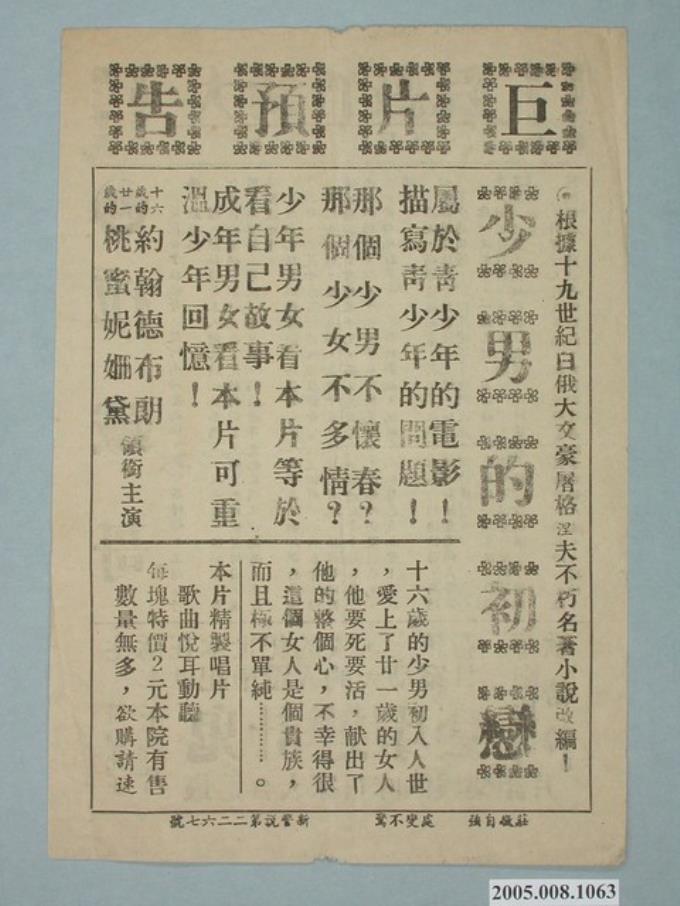 巨片預告
根據十九世紀白俄大文豪屠格涅夫不朽名著小說改編！
少男的初戀
屬於青少年的電影！
描寫青少年的問題！
那個少男不懷春？
那個少女不多情？
少年男女看本片等於
看自己故事！
成年男女看本片可重
溫少年回憶！
十六歲的約翰德布朗
廿一歲的桃蜜妮姍黛
領銜主演
十六歲的少男初入人世
，愛上了廿一歲的女人
，他要死要活，献出了
他的整個心，不幸得很
，這個女人是個貴族，
而且極不單純………。
本片精製唱片
歌曲悅耳動聽
每塊特價2元本院有售
數量無多，欲購請速
莊敬自強 處變不驚 新警說第二二六七號
2005.008.1063